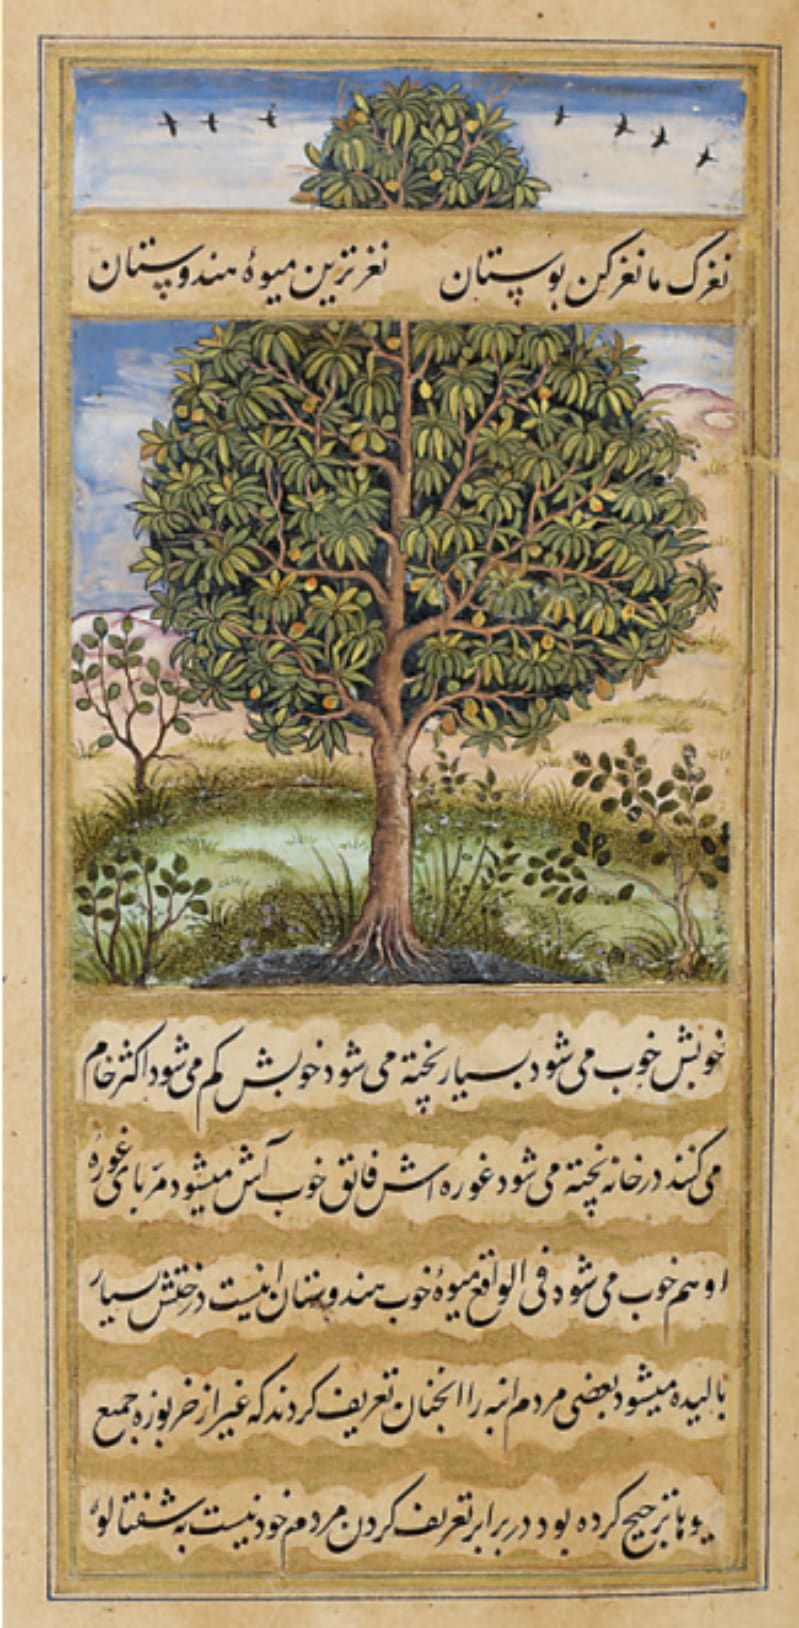 نغزک ما نغز کن بوستان نغز ترین میوهٔ هندوستان
خوبش خوب می شود بسیار پخته می شود خوبش کم می شود اکثر خام
می کنند در خانه پخته می شود غوره اش فاتق خوب آش میشود مربای غورهٔ
او هم خوب می شود فی الواقع میوهٔ خوب هندوستان اینست درختش بسیار
بالیده میشود بعضی مردم انبه را انجنان تعریف کردند که غیر از خربوزه جمیع
یوها ترجیح کرده بود در برابر تعریف کردن مردم خود نیست به شفتالوء